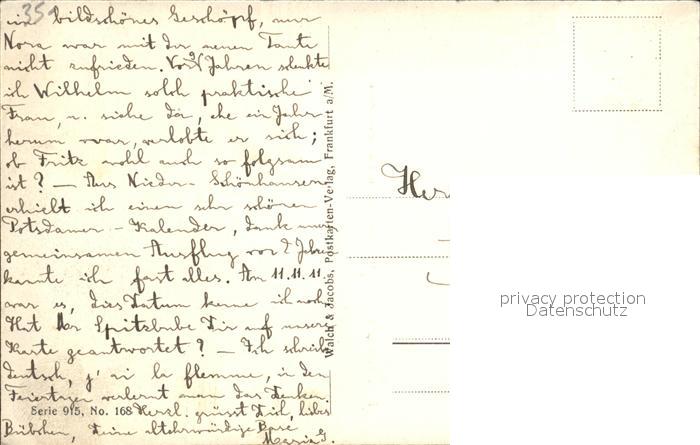 ein bildschönes Geschöpf, nur
Nora war mit der neuen Tante
nicht zufrieden. Vor Jahren schenkte
ich Wilhelm solch praktische
Frau, u. siehe da, ehe ein Jahr
herum war, verlobte er sich;
ob Fritz wohl auch so folgsam
ist? — Aus Nieder-Schönhausen
erhielt ich einen sehr schönen
Potsdamer-Kalender, dank
gemeinsamen Ausflug vor 2 Jahren
kannte ich fast alles. Am 11.11.11.
war es, dies Datum kenne ich noch
Hat der Spitzbube Dir auf unsere
Karte geantwortet? — Ich schreib
deutsch, j'ai la flemme, in den
Feiertagen verlernt man das Denken.
Herzl. grüsst Dich, liebes
Bübchen, Deine altehrwürdige Base
Maria G.
35
Serie 915, No. 168
Walch & Jacobs, Postkarten-Verlag, Frankfurt a/M.
Her
privacy protection
Datenschutz